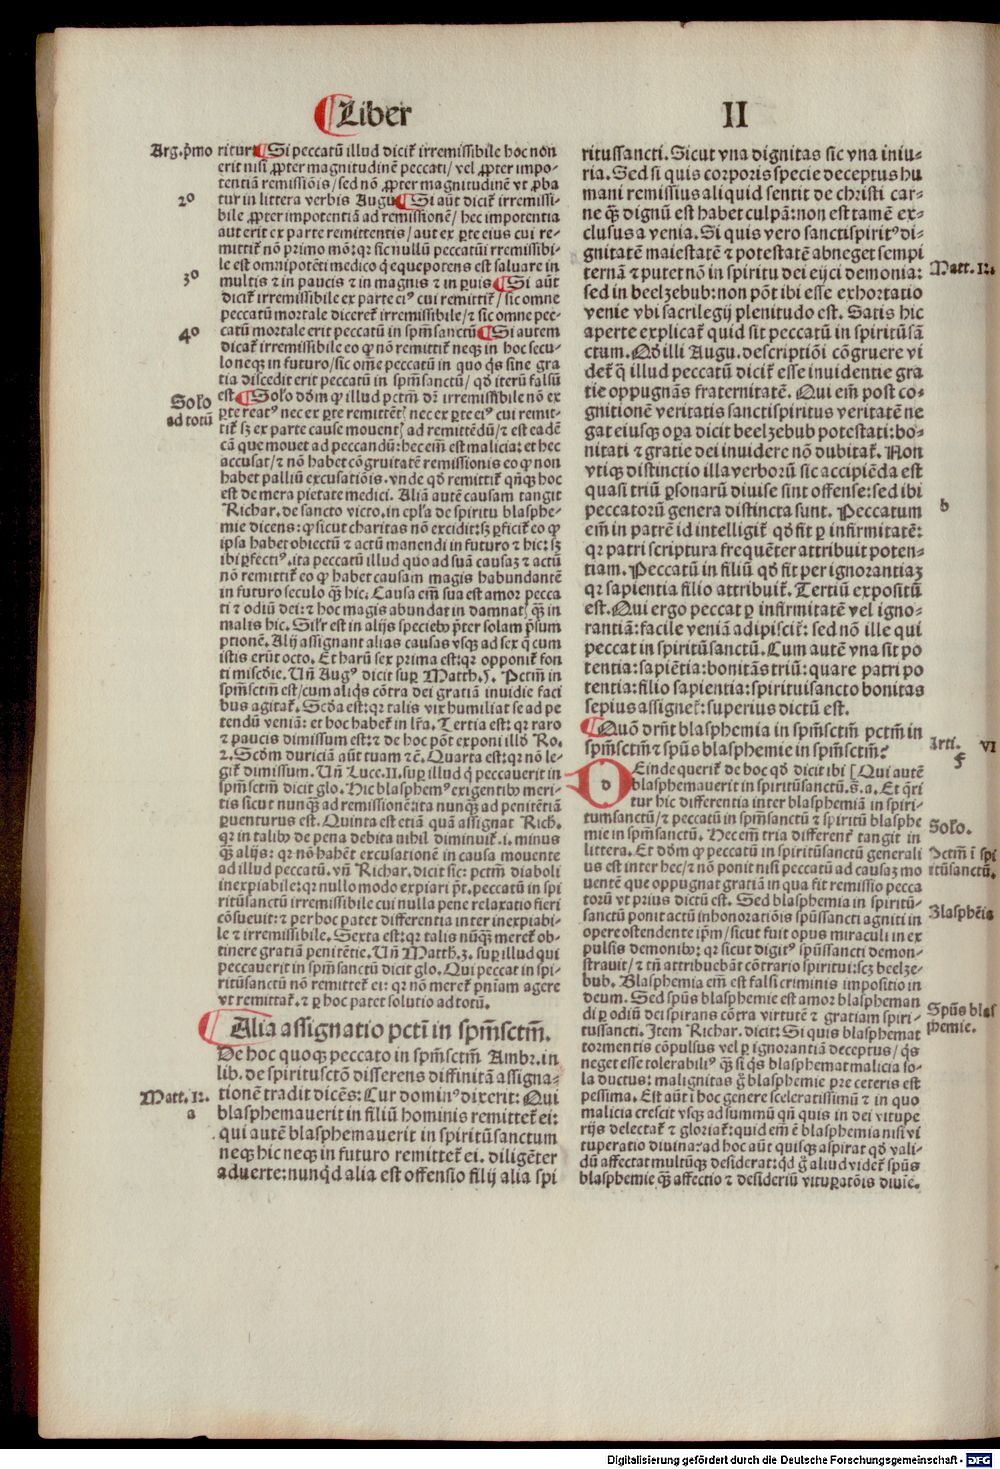 Liber II
Arg. p̄mo
ritur: Si peccatū illud dicit᷑ irremissibile hoc non
erit nisi ꝓpter magnitudinē peccati/ vel ꝓpter impo-
tentiā remissiōis/ sed nō ꝓpter magnitudinē vt ꝓba
2o
tur in littera verbis Augu. Si aūt dicit᷑ irremissi-
bile ꝓpter impotentiā ad remissionē/ hec impotentia
aut erit ex parte remittentis/ aut ex ꝑte eius cui re-
mittit᷑ nō primo mō: qꝛ sic nullū peccatū irremissibi-
le est omnipotēti medico q̄ eque potens est saluare in
3o
multis ⁊ in paucis ⁊ in magnis ⁊ in ꝑuis. Si aūt
dicit᷑ irremissibile ex parte eiꝰ cui remittit᷑/ sic omne
peccatū mortale diceret᷑ irremissibile/ ⁊ sic omne pec-
4o
catū mortale erit peccatū in spm̄ sanctū. Si autem
dicat᷑ irremissibile eo ꝙ nō remittit᷑ neqꝫ in hoc secu-
lo neqꝫ in futuro/ sic om̄e peccatū in quo q̄s sine gra
tia discedit erit peccatū in spm̄sanctū/ qd̄ iterū falsū
Solo
ad totū
est. Solo dōm ꝙ illud pctm̄ dn̄ irremissibile nō ex
ꝑte reatꝰ nec ex ꝑte remittētꝭ nec ex ꝑte eiꝰ cui remit-
tit᷑ sꝫ ex parte cause mouentꝭ ad remittēdū/ ⁊ est eadē
cā que mouet ad peccandū: hec em̄ est malicia: et hec
accusat/ ⁊ nō habet cōgruitatē remissionis eo ꝙ non
habet palliū excusatiōis. vnde qd̄ remittit᷑ qn̄qꝫ hoc
est de mera pietate medici. Aliā autē causam tangit
Richar. de sancto victo. in ep̄la de spiritu blasphe-
mie dicens: ꝙ sicut charitas nō excidit: sꝫ ꝑficit᷑ eo ꝙ
ipsa habet obiectū ⁊ actū manendi in futuro ⁊ hic: sꝫ
ibi ꝑfectiꝰ. ita peccatū illud quo ad suā causaꝫ ⁊ actū
nō remittit᷑ eo ꝙ habet causam magis habundantē
in futuro seculo qꝫ̄ hic. Causa em̄ sua est amor pecca
ti ⁊ odiū dei: ⁊ hoc magis abundat in damnatꝭ qꝫ̄ in
malis hic. Silr̄ est in alijs speciebꝰ p̄ter solam p̄sum
ptionē. Alij assignant alias causas vsqꝫ ad sex q̄ cum
istis erūt octo. Et harū sex prima est: qꝛ opponit᷑ fon
ti mis̄cdie. Vn̄ Augꝰ dicit suꝑ Matth. 5. Pctm̄ in
spm̄sctm̄ est/ cum aliq̄s cōtra dei gratiā inuidie faci
bus agitat᷑. Scd̄a est: qꝛ talis vix humiliat se ad pe
tendū veniā: et hoc habet᷑ in lr̄a. Tertia est: qꝛ raro
⁊ paucis dimissum est: ⁊ de hoc pōt exponi illd̄ Ro.
2. Scdm̄ duriciā aūt tuam ⁊c̄. Quarta est: qꝛ nō le-
git᷑ dimissum. Vn̄ Luce. 11. suꝑ illud q̄ peccauerit in
spm̄sctm̄ dicit glo. Hic blasphemꝰ exigentibꝰ meri-
tis sicut nunqꝫ̄ ad remissionē: ita nunqꝫ̄ ad penitētiā
ꝑuenturus est. Quinta est etiā quā assignat Rich.
qꝛ in talibꝰ de pena debita nihil diminuit᷑. i. minus
qꝫ̄ alijs: qꝛ nō habēt excusationē in causa mouente
ad illud peccatū. vn̄ Richar. dicit sic: pctm̄ diaboli
inexpiabile: qꝛ nullo modo expiari p̄t. peccatū in spi
ritūsanctū irremissibile cui nulla pene relaxatio fieri
cōsueuit: ⁊ per hoc patet differentia inter inexpiabi-
le ⁊ irremissibile. Sexta est: qꝛ talis nūqꝫ̄ meret᷑ ob-
tinere gratiā penitētie. Vn̄ Matth. 3. suꝑ illud qui
peccauerit in spm̄sanctū dicit glo. Qui peccat in spi-
ritūsanctū nō remittet᷑ ei: qꝛ nō meret᷑ pn̄iam agere
vt remittat᷑. ⁊ ꝑ hoc patet solutio ad totū.
Alia assignatio pcti̅ in spm̄sctm̄.
De hoc quoqꝫ peccato in spm̄sctm̄ Ambr. in
lib. de spiritusctō disserens diffinitā assigna-
Matt. 12.
a
tionē tradit dicēs: Cur dominꝰ dixerit: Qui
blasphemauerit in filiū hominis remittet᷑ ei:
qui autē blasphemauerit in spiritūsanctum
neqꝫ hic neqꝫ in futuro remittet᷑ ei. diligēter
aduerte: nunqd̄ alia est offensio filij alia spi
ritussancti. Sicut vna dignitas sic vna iniu-
ria. Sed si quis corporis specie deceptus hu
mani remissius aliquid sentit de christi car-
ne qꝫ̄ dignū est habet culpā: non est tamē ex-
clusus a venia. Si quis vero sanctispiritꝰ di-
gnitatē maiestatē ⁊ potestatē abneget sempi
Matt. 12.
ternā ⁊ putet nō in spiritu dei eijci demonia:
sed in beelzebub: non pōt ibi esse exhortatio
venie vbi sacrilegij plenitudo est. Satis hic
aperte explicat᷑ quid sit peccatū in spiritūsā-
ctum. Qd̄ illi Augu. descriptiōi cōgruere vi
det᷑ q̄ illud peccatū dicit᷑ esse inuidentie gra
tie oppugnās fraternitatē. Qui em̄ post co-
gnitionē veritatis sanctispiritus veritatē ne-
gat eiusqꝫ oꝑa dicit beelzebub potestati: bo-
nitati ⁊ gratie dei inuidere nō dubitat᷑. Non
vtiqꝫ distinctio illa verborū sic accipiēda est
quasi triū ꝑsonarū diuise sint offense: sed ibi
b
peccatorū genera distincta sunt. Peccatum
em̄ in patrē id intelligit᷑ qd̄ fit ꝑ infirmitatē:
qꝛ patri scriptura frequēter attribuit poten-
tiam. Peccatū in filiū qd̄ fit per ignorantiaꝫ
qꝛ sapientia filio attribuit᷑. Tertiū expositū
est. Qui ergo peccat ꝑ infirmitatē vel igno-
rantiā: facile veniā adipiscit᷑: sed nō ille qui
peccat in spiritūsanctū. Cum autē vna sit po
tentia: sapiētia: bonitās triū: quare patri po
tentia: filio sapientia: spirituisancto bonitas
sepius assignet᷑: superius dictū est.
Quō drn̄t blasphemia in spm̄sctm̄ pctm̄ in
Arti. VI
spm̄sctm̄ ⁊ spūs blasphemie in spm̄sctm̄?
DEinde querit᷑ de hoc qd̄ dicit ibi [Qui autē
blasphemauerit in spiritūsanctū. s̄. a. Et q̄ri
tur hic differentia inter blasphemiā in spiri-
tumsanctū/ ⁊ peccatū in spm̄sanctū ⁊ spiritū blasphe
Solo.
mie in spm̄sanctū. Hec em̄ tria differenter tangit in
littera. Et dōm ꝙ peccatū in spiritūsanctū generali
Pctm̄ ī spi
ritūsanctū.
us est inter hec/ ⁊ nō ponit nisi peccatū ad causaꝫ mo
uentē que oppugnat gratiā in qua fit remissio pecca
torū vt prius dictū est. Sed blasphemia in spiritū-
Blasphēia
sanctū ponit actū inhonoratiōis spūssancti agniti in
opere ostendente ip̄m/ sicut fuit opus miraculi in ex
pulsis demonibꝰ: qꝛ sicut digitꝰ spūssancti demon-
strauit/ ⁊ tn̄ attribuebāt cōtrario spiritui: scꝫ beelze-
bub. Blasphemia em̄ est falsi criminis impositio in
deum. Sed spūs blasphemie est amor blapheman
Spūs blas
phemie.
di ꝑ odiū dei spirans cōtra virtutē ⁊ gratiam spiri-
tussancti. Item Richar. dicit: Si quis blasphemat
tormentis cōpulsus vel ꝑ ignorantiā deceptus/ q̄s
neget esse tolerabiliꝰ qꝫ̄ si q̄s blasphemat malicia so-
la ductus: malignitas g̊ blasphemie pre ceteris est
pessima. Est aūt ī hoc genere sceleratissimū ⁊ in quo
malicia crescit vsqꝫ ad summū qn̄ quis in dei vitupe
rijs delectat᷑ ⁊ gloriat᷑: quid em̄ ē blasphemia nisi vi
tuperatio diuina: ad hoc aūt quisqꝫ aspirat qd̄ vali-
dū affectat multūqꝫ desiderat: qd̄ g̊ aliud videt᷑ spūs
blasphemie qꝫ̄ affectio ⁊ desideriū vituꝑatōis diuīe.
Digitalisierung gefördert durch die Deutsche Forschungsgemeinschaft - DFG